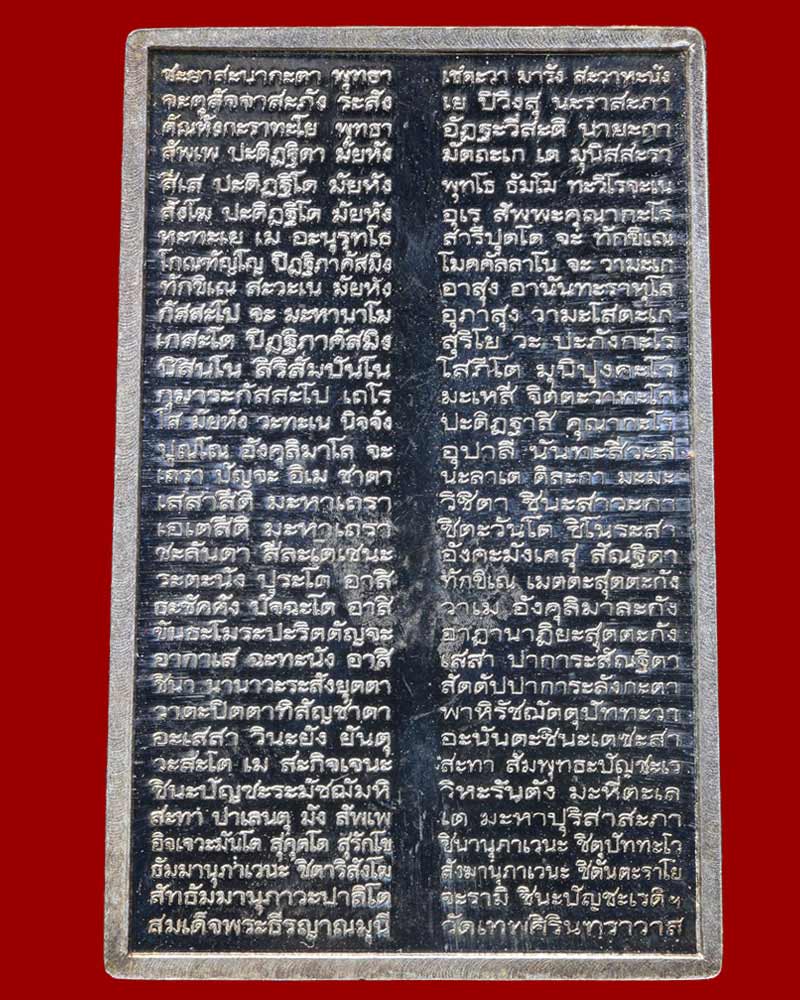 ชะยาสะนากะตา พุทธา เชตะวา มารัง สะวาหะนัง
จะตุสัจจาสะภัง ระสัง เย ปิวิงสุ นะราสะภา
ตัณหังกะราทะโย พุทธา อัฏฐะวีสะติ นายะกา
สัพเพ ปะติฏฐิตา มัยหัง มัตถะเก เต มุนิสสะรา
สีเส ปะติฏฐิโต มัยหัง พุทโธ ธัมโม ทะวิโรจะเน
สังโฆ ปะติฏฐิโต มัยหัง อุเร สัพพะคุณากะโร
หะทะเย เม อะนุรุทโธ สารีปุตโต จะ ทักขิเณ
โกณฑัญโญ ปิฏฐิภาคัสมิง โมคคัลลาโน จะ วามะเก
ทักขิเณ สะวะเน มัยหัง อาสุง อานันทะราหุโล
กัสสะโป จะ มะหานาโม อุภาสุง วามะโสตะเก
เกสะโต ปิฏฐิภาคัสมิง สุริโย วะ ปะภังกะโร
นิสินโน สิริสัมปันโน โสภิโต มุนิปุงคะโว
กุมาระกัสสะโป เถโร มะเหสี จิตตะวาทะโก
โส มัยหัง วะทะเน นิจจัง ปะติฏฐาสิ คุณากะโร
ปุณโณ อังคุลิมาโล จะ อุปาลี นันทะสีวะลี
เถรา ปัญจะ อิเม ชาตา นะลาเต ติละกา มะมะ
เสสาสีติ มะหาเถรา วิชิตา ชินะสาวะกา
เอเตสีติ มะหาเถรา ชิตะวันโต ชิโนระสา
ชะลันตา สีละเตเชนะ อังคะมังเคสุ สัณฐิตา
ระตะนัง ปุระโต อาสิ ทักขิเณ เมตตะสุตตะกัง
ธะชัคคัง ปัจฉะโต อาสิ วาเม อังคุลิมาละกัง
ขันธะโมระปะริตตัญจะ อาฏานาฏิยะสุตตะกัง
อากาเส ฉะทะนัง อาสิ เสสา ปาการะสัณฐิตา
ชินา นานาวะระสังยุตตา สัตตัปปาการะลังกะตา
วาตะปิตตาทิสัญชาตา พาหิรัชฌัตตุปัททะวา
อะเสสา วินะยัง ยันตุ อะนันตะชินะเตชะสา
วะสะโต เม สะกิจเจนะ สะทา สัมพุทธะปัญชะเร
ชินะปัญชะระมัชฌัมหิ วิหะรันตัง มะหีตะเล
สะทา ปาเลนตุ มัง สัพเพ เต มะหาปุริสาสะภา
อิจเจวะมันโต สุคุตโต สุรักโข ชินานุภาเวนะ ชิตุปัททะโว
ธัมมานุภาเวนะ ชิตาริสังโฆ สังฆานุภาเวนะ ชิตันตะราโย
สัทธัมมานุภาวะปาลิโต จะรามิ ชินะปัญชะเรติ ฯ
สมเด็จพระธีรญาณมุนี วัดเทพศิรินทราวาส